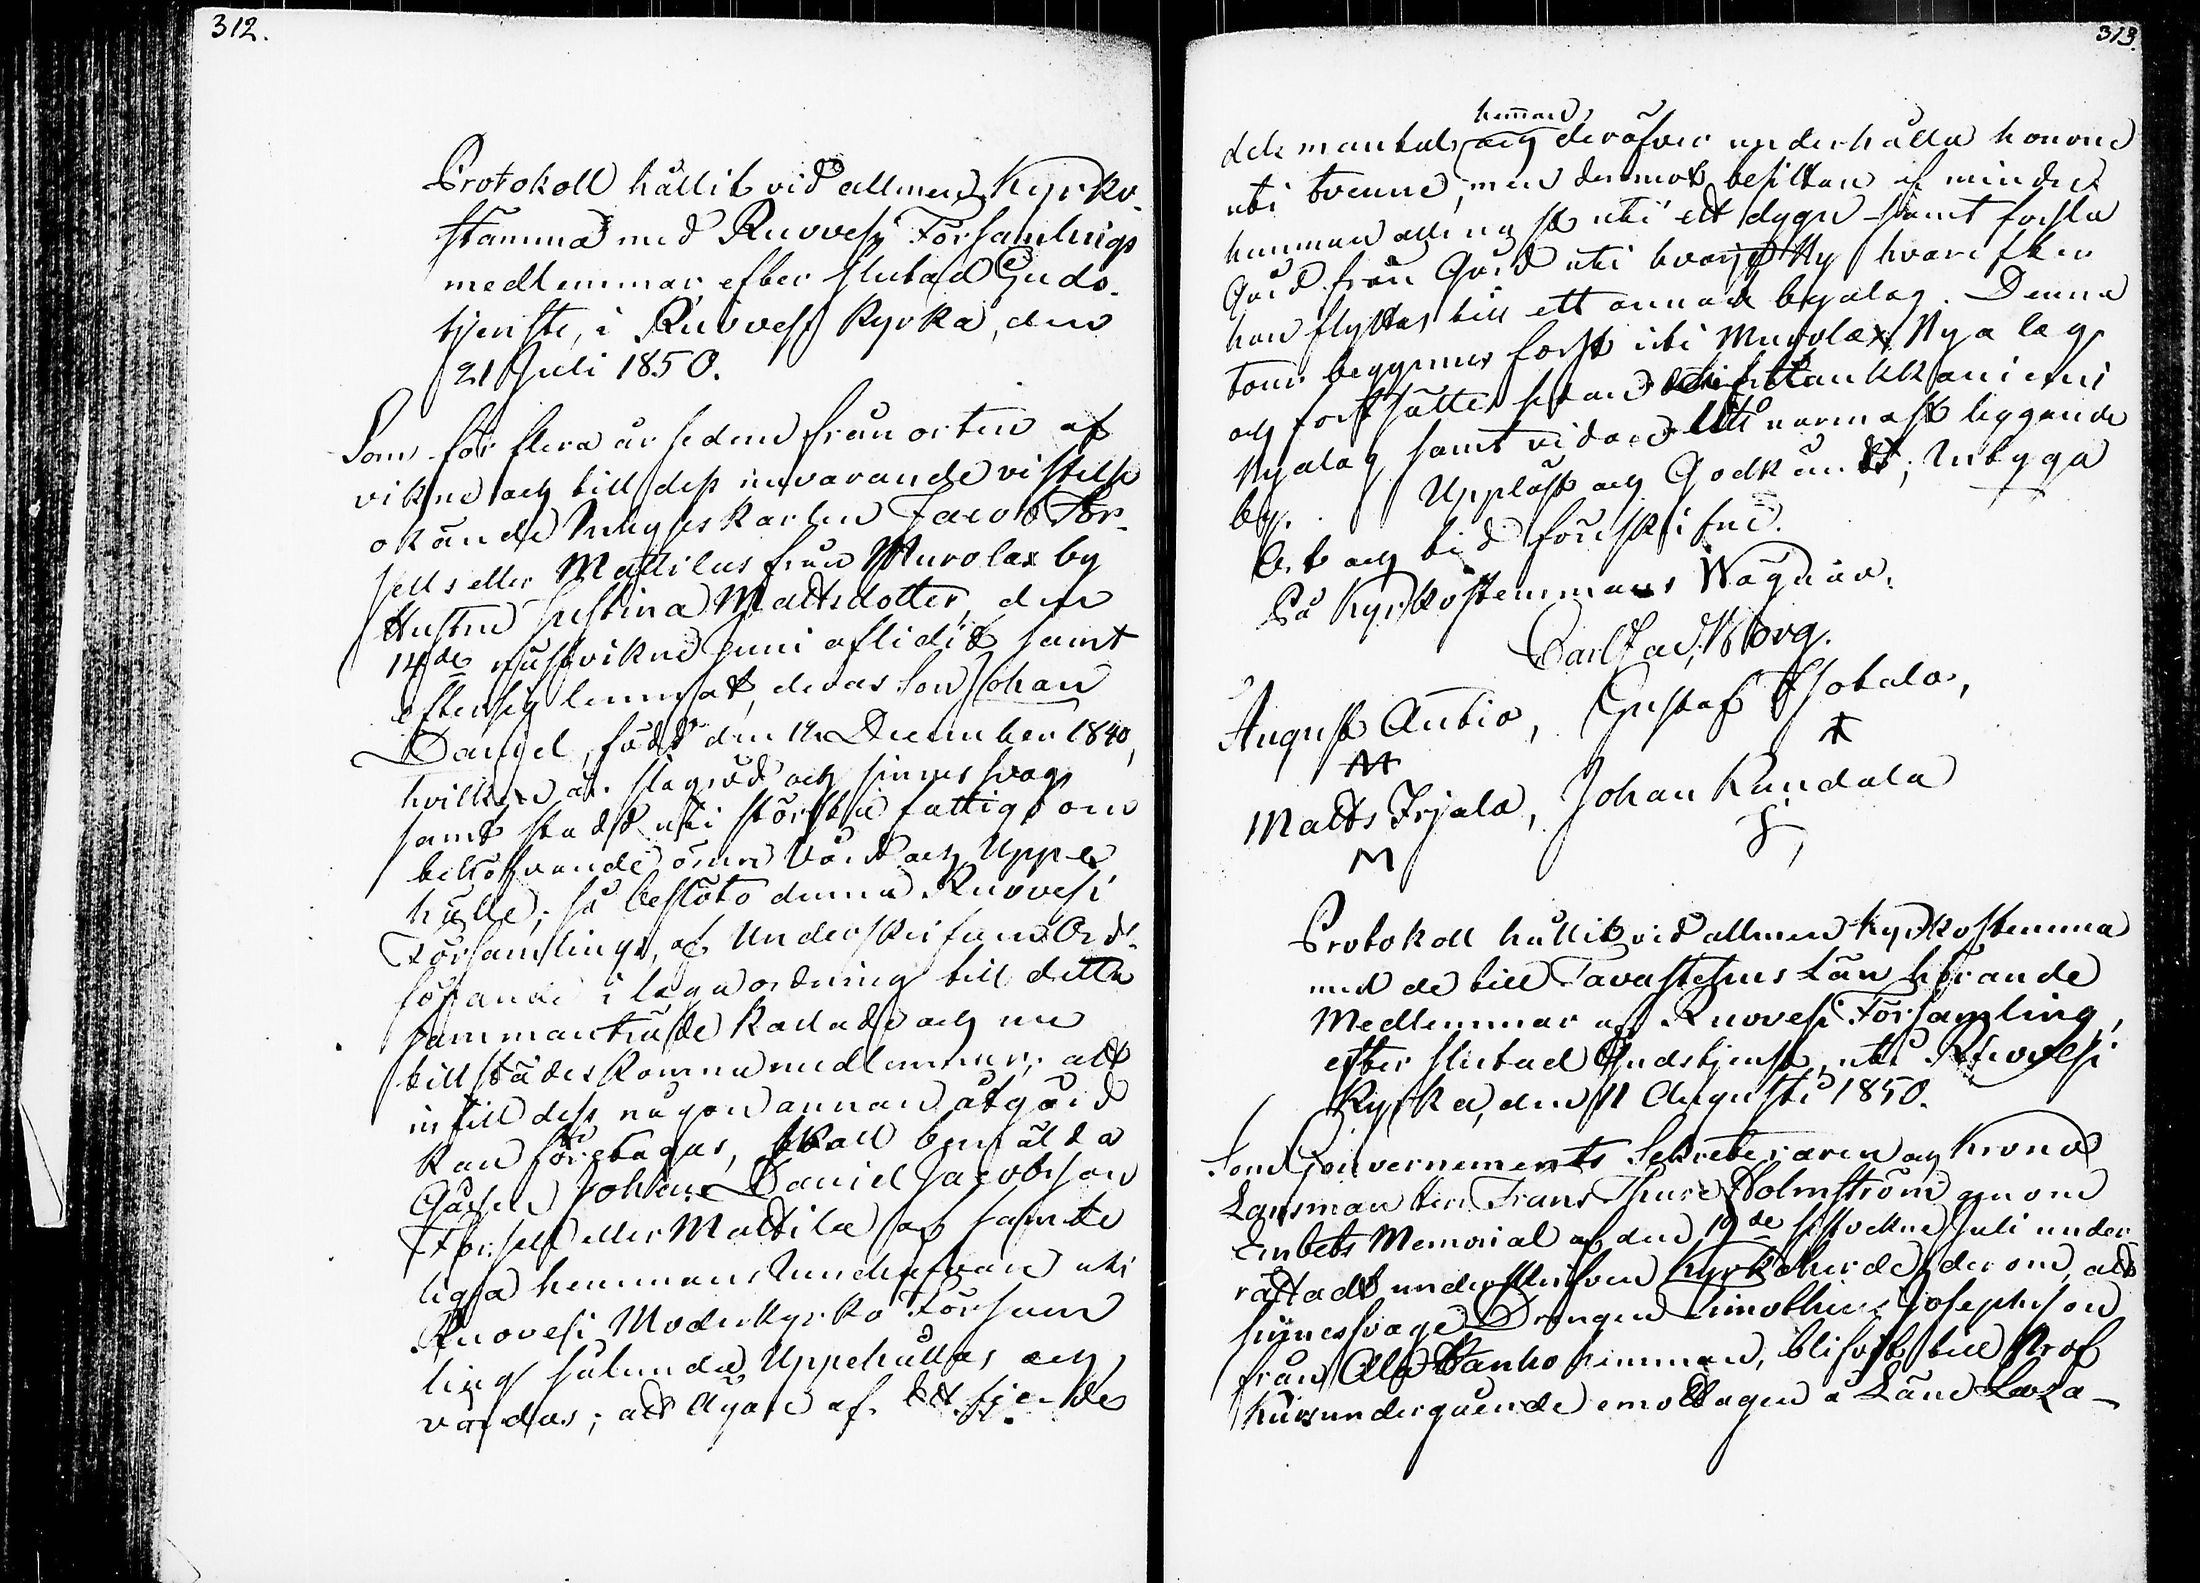 312.
Protokoll hållit vid allmen Kyrko-
stämma med Ruovesi Församlings
medlemmar efter slutad Guds-
tjenste, i Ruovesi Kyrka, den
21 Juli 1850.
Som för flera år sedan från orten af
vikne och till dess nuvarande vistelse
okände Inhyseskarlen Jacob For-
sells eller Mattilas från Murolax by
Hustru Justina Mattsdotter, den
14de nästvikne Juni aflidit samt
efter sig lemnat, deras Son Johan
Daniel, född den 14 December 1840,
hvilken är slagrörd och sinnes svag
samt stadd uti största fattigdom
behöfvande öm Vård och Uppe
hälle; så beslöto denna Ruovesi
Församlings, af Underskrifven Ord-
förande i laga ordning till detta
sammanträde kallade och nu
tillstädes komna medlemmar; att
intill dess någon annan åtgärd
kan företagas, skall bemälda
Gossen Johan Daniel Jacobsson
Forsell eller Mattila af samte
liga hemmans Innehafvare uti
Ruovesi Moderkyrko Försam
ling sålunda Uppehållas och
vårdas; att Ägare af ett fjerde
313.
dels mantals hemman och deröfver underhålla honom
uti tvenne, men deremot besittare af mindre
hemman allenast uti ett dygn samt forsla
Gård från Gård uti hvarje By hvarefter
han flyttas till ett annat byalag. Denna
tour begynnes först uti Murolax Bya lag
och fortsättes sedan uti Pittkaniemi
Byalag samt vidare uti närmast liggande
by. Uppläst och Godkändt; Intyga
Ort och tid föreskrifne.
På Kyrkostemmans Wägnar.
Carl Jac. Borg.
August Autio, Gustaf Hotala,
Matts Irjala, Johan Rundala
M
Protokoll hållit vid allmen Kyrkostemma
med de till Tavastehus Län hörande
Medlemmar af Ruovesi Församling,
efter slutad Gudstjenst, uti Ruovesi
Kyrka, den 11 Augusti 1850.
Som Gouvernements Sekreteraren och Krono
Länsman Herr Frans Thure Holmström genom
Embets Memorial af den 19de sistvekne Juli under
rättadt underskrifven Kyrkoherde derom, att
sinnessvage Drängen Timotheus Josephsson
från Ala Tanho hemman, blifvit till Prof
kurs undergående emottagen å Läns Laza-